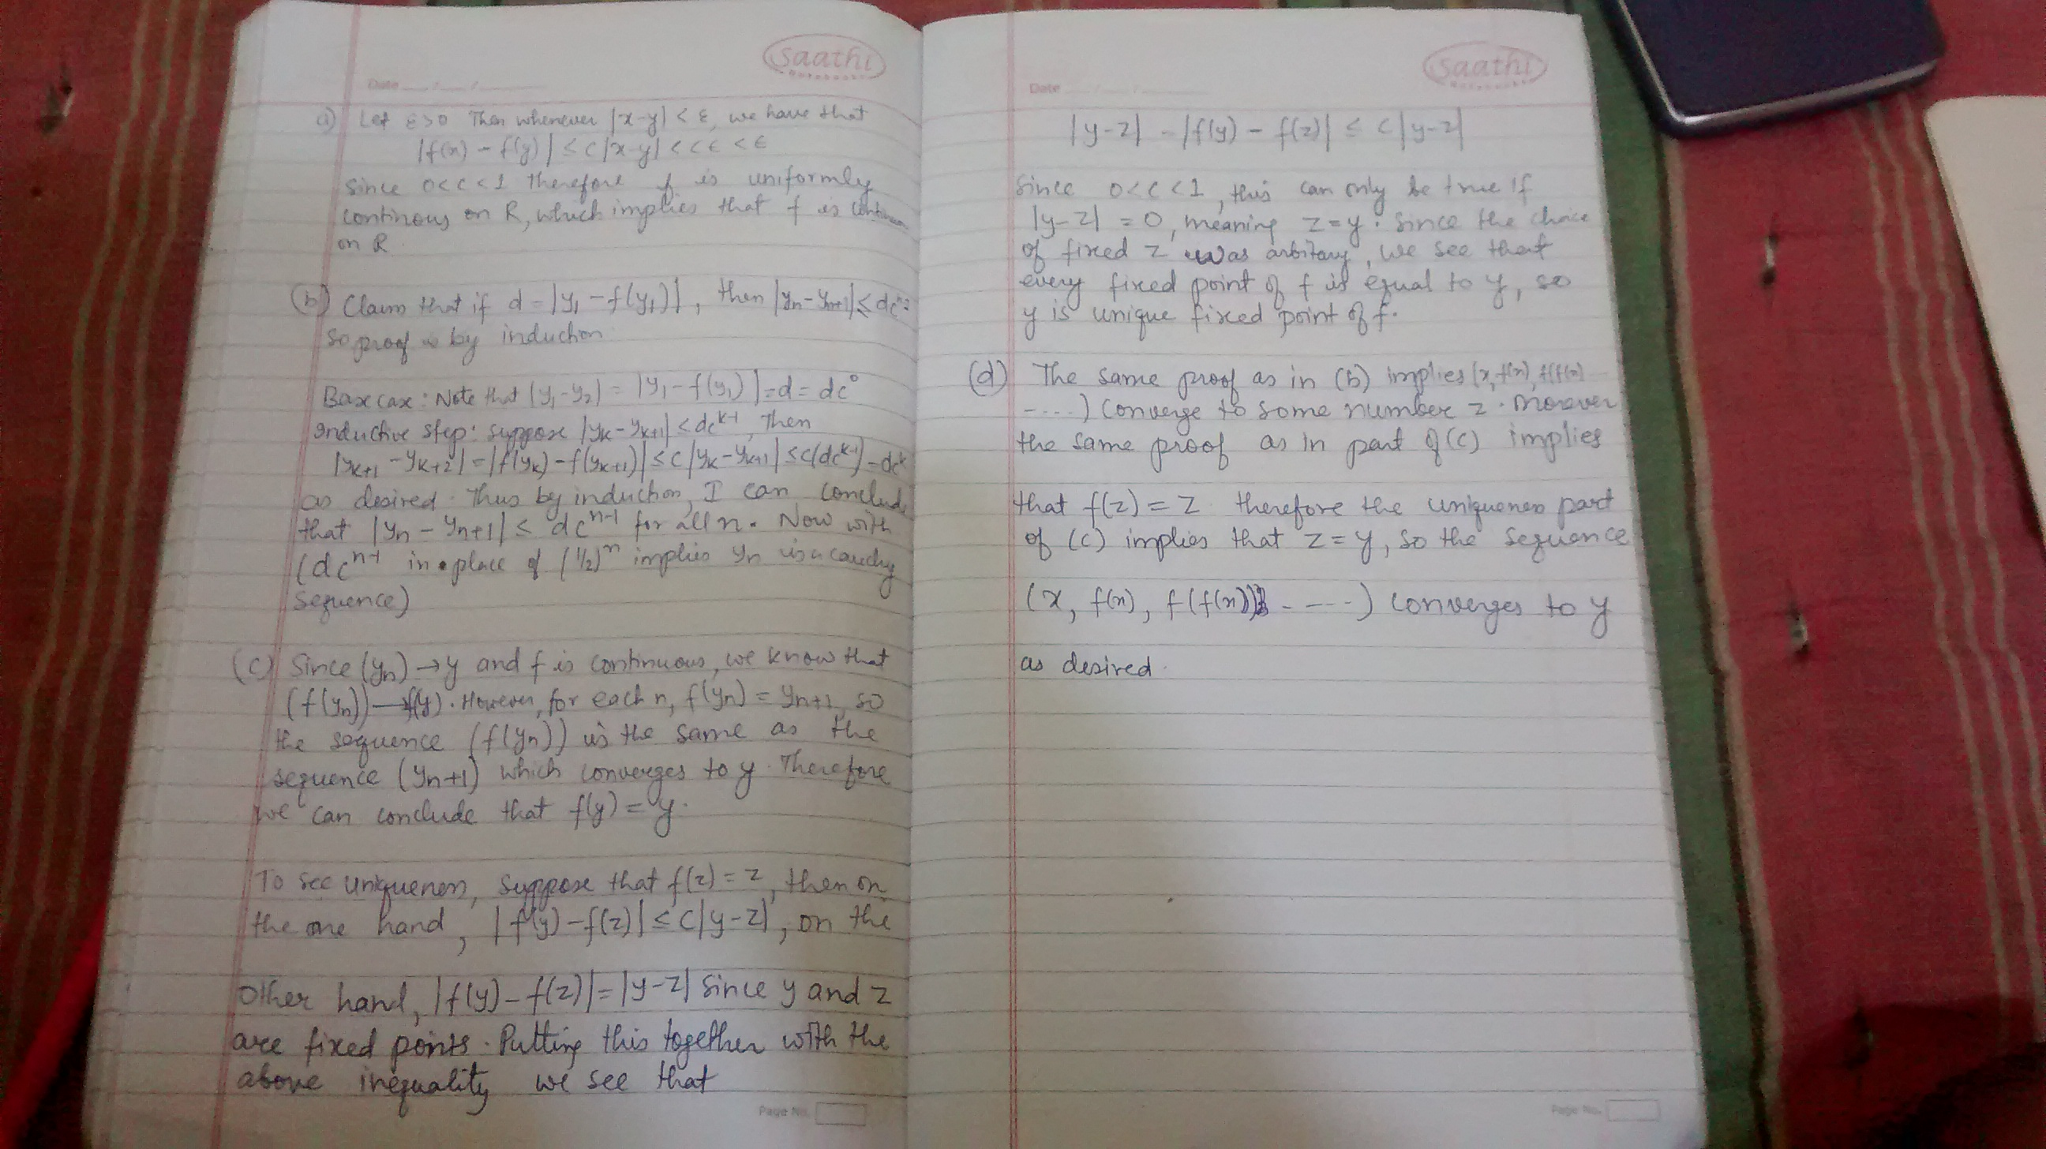 Saathi
Date
a) Let ε>0 Then whenever |x-y| < ε, we have that
|f(x) - f(y)| ≤ c|x-y| < cε < ε
Since 0<c<1 therefore f is uniformly
continous on R, which implies that f is
on R
(b) Claim that if d = |y₁ - f(y₁)|, then |yn - yn+1| ≤
so proof is by induction
Base case: Note that |y₁-y₂| = |y₁ - f(y₁)| = d = dc⁰
inductive step: suppose |yk - yk+1| < dc^k-1, Then
|yk+1 - yk+2| = |f(yk) - f(yk+1)| ≤ c|yk - yk+1| ≤ c(dc^k-1) = dc^k
as desired. Thus by induction, I can conclude
that |yn - yn+1| ≤ dc^n-1 for all n. Now with
(dc^n-1 in place of (1/2)^n implies yn is a cauchy
Sequence)
(c) Since (yn) → y and f is continuous, we know that
(f(yn)) → f(y). However, for each n, f(yn) = yn+1, so
the sequence (f(yn)) is the same as the
sequence (yn+1) which converges to y. Therefore
we can conclude that f(y) = y.
To see uniqueness, suppose that f(z) = z, then on
the one hand, |f(y) - f(z)| ≤ c|y-z|, on the
other hand, |f(y) - f(z)| = |y-z| since y and z
are fixed points. Putting this together with the
above inequality we see that
Page No.
Saathi
Date
|y-z| - |f(y) - f(z)| ≤ c|y-z|
Since 0<c<1, this can only be true if
|y-z| = 0, meaning z=y. Since the choice
of fixed z was arbitary, we see that
every fixed point of f is equal to y, so
y is unique fixed point of f.
(d) The same proof as in (b) implies (x, f(x), f(f(x)
-....) converge to some number z. Morever
the same proof as in part of (c) implies
that f(z) = z therefore the uniqueness part
of (c) implies that z = y, so the sequence
(x, f(x), f(f(x)) - ---) converges to y
as desired.
Page No.